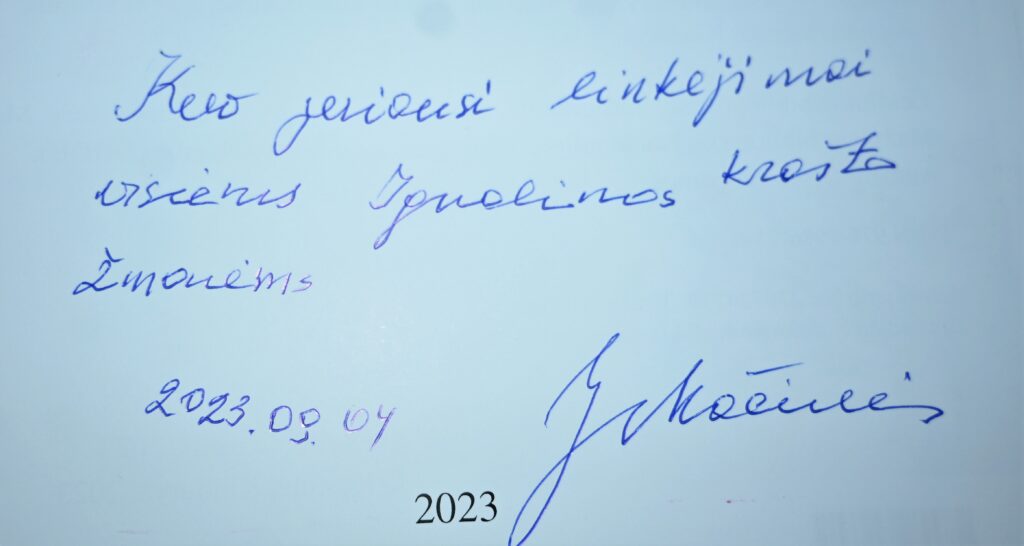 Kuo geriausi linkėjimai
visiems Ignalinos krašto
žmonėms
2023.09.04
2023